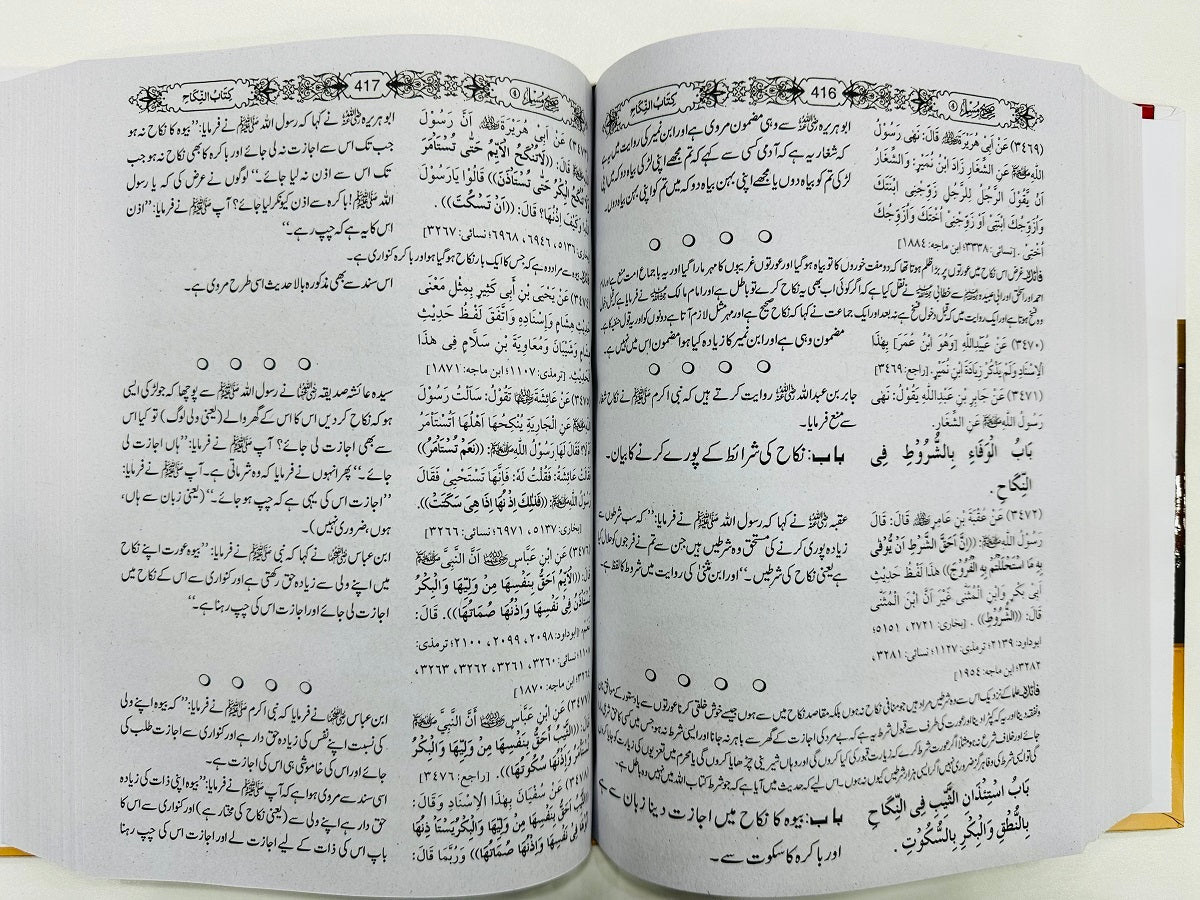 صحیح مسلم ④ 416 کتاب النکاح
(٣٤٦٩) عَنْ أَبِي هُرَيْرَةَ ﷺ قَالَ: نَهٰى رَسُولُ
اللّٰهِ ﷺ عَنِ الشِّغَارِ زَادَ ابْنُ نُمَيْرٍ: وَالشِّغَارُ
أَنْ يَقُولَ الرَّجُلُ لِلرَّجُلِ زَوِّجْنِى ابْنَتَكَ
وَأُزَوِّجُكَ ابْنَتِى أَوْ زَوِّجْنِىْ أُخْتَكَ وَأُزَوِّجُكَ
أُخْتِىْ. [نسائی: ٣٣٣٨؛ ابن ماجہ: ١٨٨٤]
ابو ہریرہ ؓ سے وہی مضمون مروی ہے اور ابن نمیر کی روایت میں یہ ہے
کہ شغار یہ ہے کہ آدمی کسی سے کہے کہ تم مجھے اپنی لڑکی بیاہ دو کہ میں اپنی
لڑکی تم کو بیاہ دوں یا مجھے اپنی بہن بیاہ دو کہ میں تم کو اپنی بہن بیاہ دوں۔
فائدہ غرض اس نکاح میں عورتوں پر بڑا ظلم ہوتا تھا کہ دو مفت خوروں کا تو بیاہ ہو گیا اور عورتوں غریبوں کا مہر مارا گیا اور یہ با جماع امت منع ہے اور امام
احمد اور اسحٰق اور ابی عبیدہ ؒ سے خطابی ؒ نے نقل کیا ہے کہ اگر کوئی اب بھی یہ نکاح کرے تو باطل ہے اور امام مالک ؒ نے فرمایا ہے کہ قبل دخول
وہ فسخ ہوتا ہے اور ایک روایت میں کہ قبل دخول فسخ ہے نہ بعد اور ایک جماعت نے کہا کہ نکاح صحیح ہے اور مہر مثل لازم آتا ہے دونوں کو اور یہ قول حنفیہ کا ہے۔
(٣٤٧٠) عَنْ عُبَيْدِاللّٰهِ [وَهُوَ ابْنُ عُمَرَ] بِهٰذَا
الْاِسْنَادِ وَلَمْ يَذْكُرْ زِيَادَةَ ابْنِ نُمَيْرٍ. [راجع: ٣٤٦٩]
مضمون وہی ہے اور ابن نمیر کا زیادہ کیا ہوا مضمون اس میں نہیں ہے۔
(٣٤٧١) عَنْ جَابِرِ بْنِ عَبْدِاللّٰهِ يَقُوْلُ: نَهٰى
رَسُوْلُ اللّٰهِ ﷺ عَنِ الشِّغَارِ.
جابر بن عبداللہ ؓ روایت کرتے ہیں کہ نبی اکرم ﷺ نے نکاح شغار
سے منع فرمایا۔
بَابُ الْوَفَاءِ بِالشُّرُوْطِ فِى
النِّكَاحِ.
باب: نکاح کی شرائط کے پورے کرنے کا بیان۔
(٣٤٧٢) عَنْ عُقْبَةَ بْنِ عَامِرٍ ؓ قَالَ: قَالَ
رَسُوْلُ اللّٰهِ ﷺ: ((إِنَّ أَحَقَّ الشَّرْطِ أَنْ يُّوْفٰى
بِهِ مَا اسْتَحْلَلْتُمْ بِهِ الْفُرُوْجَ)) هٰذَا لَفْظُ حَدِيْثِ
أَبِى بَكْرٍ وَابْنِ الْمُثَنّٰى غَيْرَ أَنَّ ابْنَ الْمُثَنّٰى
قَالَ: ((الشُّرُوْطِ)). [بخاری: ٢٧٢١، ٥١٥١؛
ابوداود: ٢١٣٩؛ ترمذی: ١١٢٧؛ نسائی: ٣٢٨١،
٣٢٨٢؛ ابن ماجہ: ١٩٥٤]
عقبہ ؓ نے کہا کہ رسول اللہ ﷺ نے فرمایا: ”کہ سب شرطوں سے
زیادہ پوری کرنے کی مستحق وہ شرطیں ہیں جن سے تم نے فرجوں کو حلال کیا
ہے یعنی نکاح کی شرطیں۔“ اور ابن مثنیٰ کی روایت میں شروط کا لفظ ہے۔
فائدہ علما کے نزدیک اس سے وہ شرطیں مراد ہیں جو منافی نکاح نہ ہوں بلکہ مقاصد نکاح میں سے ہوں جیسے خوش خلقی کرنا عورتوں سے یا دستور کے موافق
بَابُ اسْتِئْذَانِ الثَّيِّبِ فِى النِّكَاحِ
بِالنُّطْقِ وَالْبِكْرِ بِالسُّكُوْتِ.
باب: بیوہ کا نکاح میں اجازت دینا زبان سے ہے
اور باکرہ کا سکوت سے۔
صحیح مسلم ④ 417 کتاب النکاح
عَنْ أَبِي هُرَيْرَةَ ؓ أَنَّ رَسُوْلَ
قَالَ: ((لَا تُنْكَحُ الْأَيِّمُ حَتّٰى تُسْتَأْمَرَ
وَلَا تُنْكَحُ الْبِكْرُ حَتّٰى تُسْتَأْذَنَ)) قَالُوْا يَارَسُوْلَ
اللّٰهِ! وَكَيْفَ إِذْنُهَا؟ قَالَ: ((أَنْ تَسْكُتَ)).
[بخاری: ٥١٣٦، ٦٩٤٦، ٦٩٦٨؛ نسائی: ٣٢٦٧]
ابو ہریرہ ؓ نے کہا کہ رسول اللہ ﷺ نے فرمایا: ”بیوہ کا نکاح نہ ہو
جب تک اس سے اجازت نہ لی جائے اور باکرہ کا بھی نکاح نہ ہو جب
تک اس سے اذن نہ لیا جائے۔“ لوگوں نے عرض کی کہ یا رسول
اللہ ﷺ! باکرہ سے اذن کیونکر لیا جائے؟ آپ ﷺ نے فرمایا: ”اذن
اس کا یہ ہے کہ چپ رہے۔“
سے مراد وہ ہے کہ جس کا ایک بار نکاح ہو گیا ہو اور باکرہ کنواری ہے۔
(٣٤٧٤) عَنْ يَحْيَى بْنِ أَبِي كَثِيْرٍ بِمِثْلِ مَعْنٰى
حَدِيْثِ هِشَامٍ وَإِسْنَادِهِ وَاتَّفَقَ لَفْظُ حَدِيْثِ
هِشَامٍ وَشَيْبَانَ وَمُعَاوِيَةَ بْنِ سَلَّامٍ فِى هٰذَا
الْحَدِيْثِ. [ترمذی: ١١٠٧؛ ابن ماجہ: ١٨٧١]
اس سند سے بھی مذکورہ بالا حدیث اسی طرح مروی ہے۔
(٣٤٧٥) عَنْ عَائِشَةَ ؓ تَقُوْلُ: سَأَلْتُ رَسُوْلَ
اللّٰهِ ﷺ عَنِ الْجَارِيَةِ يُنْكِحُهَا أَهْلُهَا أَتُسْتَأْمَرُ
أَمْ لَا؟ فَقَالَ لَهَا رَسُوْلُ اللّٰهِ ﷺ: ((نَعَمْ تُسْتَأْمَرُ))
فَقَالَتْ عَائِشَةُ: فَقُلْتُ لَهُ: فَإِنَّهَا تَسْتَحْيِىْ فَقَالَ
رَسُوْلُ اللّٰهِ ﷺ: ((فَذٰلِكَ إِذْنُهَا إِذَا هِىَ سَكَتَتْ)).
[بخاری: ٥١٣٧، ٦٩٧١؛ نسائی: ٣٢٦٦]
سیدہ عائشہ صدیقہ ؓ نے رسول اللہ ﷺ سے پوچھا کہ جو لڑکی ایسی
ہو کہ نکاح کر دیں اس کا اس کے گھر والے (یعنی ولی لوگ) تو کیا اس
سے بھی اجازت لی جائے؟ آپ ﷺ نے فرمایا: ”ہاں اجازت لی
جائے۔“ پھر انہوں نے فرمایا کہ وہ شرماتی ہے۔ آپ ﷺ نے فرمایا:
”اجازت اس کی یہی ہے کہ چپ ہو جائے۔“ (یعنی زبان سے ہاں،
ہوں، ضروری نہیں)۔
(٣٤٧٦) عَنْ ابْنِ عَبَّاسٍ ؓ أَنَّ النَّبِيَّ ﷺ
قَالَ: ((الْأَيِّمُ أَحَقُّ بِنَفْسِهَا مِنْ وَلِيِّهَا وَالْبِكْرُ
تُسْتَأْذَنُ فِى نَفْسِهَا وَإِذْنُهَا صُمَاتُهَا)). قَالَ:
نَعَمْ. [ابوداود: ٢٠٩٨، ٢٠٩٩، ٢١٠٠؛ ترمذی:
١١٠٨؛ نسائی: ٣٢٦٠، ٣٢٦١، ٣٢٦٢، ٣٢٦٣،
٣٢٦٤؛ ابن ماجہ: ١٨٧٠]
ابن عباس ؓ نے کہا کہ نبی ﷺ نے فرمایا: ”بیوہ عورت اپنے نکاح
میں اپنے ولی سے زیادہ حق رکھتی ہے اور کنواری سے اس کے نکاح میں
اجازت لی جائے اور اجازت اس کی چپ رہنا ہے۔“
(٣٤٧٧) عَنِ ابْنِ عَبَّاسٍ ؓ أَنَّ النَّبِيَّ ﷺ
قَالَ: ((الثَّيِّبُ أَحَقُّ بِنَفْسِهَا مِنْ وَلِيِّهَا وَالْبِكْرُ
تُسْتَأْمَرُ وَإِذْنُهَا سُكُوْتُهَا)). [راجع: ٣٤٧٦]
ابن عباس ؓ نے فرمایا کہ نبی اکرم ﷺ نے فرمایا: ”کہ بیوہ اپنے ولی
کی نسبت اپنے نفس کی زیادہ حق دار ہے اور کنواری سے اجازت طلب کی
جائے اور اس کی خاموشی ہی اس کی اجازت ہے۔
(٣٤٧٨) عَنْ سُفْيَانَ بِهٰذَا الْاِسْنَادِ وَقَالَ:
((الثَّيِّبُ أَحَقُّ بِنَفْسِهَا مِنْ وَلِيِّهَا وَالْبِكْرُ يَسْتَأْذِنُهَا
أَبُوْهَا فِى نَفْسِهَا وَإِذْنُهَا صُمَاتُهَا)) وَرُبَّمَا قَالَ:
اسی سند سے مروی ہوا ہے کہ آپ ﷺ نے فرمایا: ”بیوہ اپنی ذات کی زیادہ
حق دار ہے اپنے ولی سے (یعنی نکاح کی مختار ہے) اور کنواری سے اس کا
باپ اس کی ذات کے لیے اجازت لے اور اجازت اس کی چپ رہنا